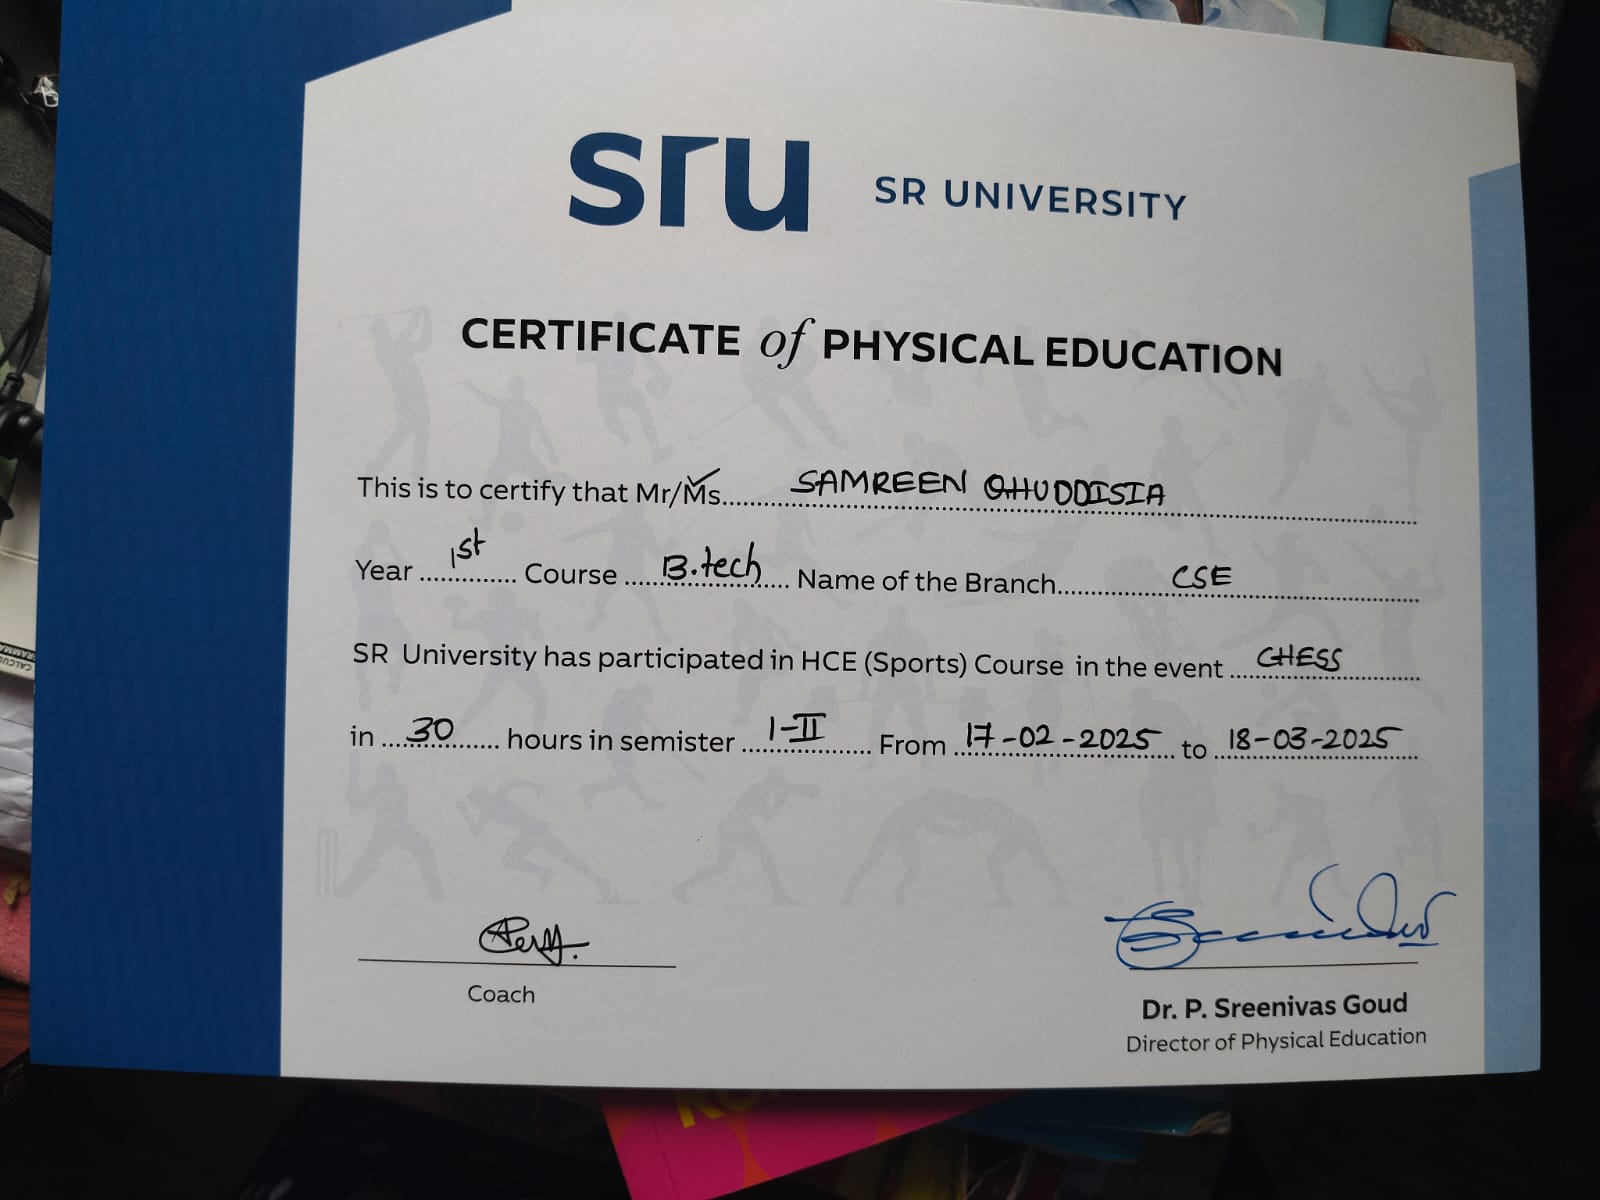 sru SR UNIVERSITY
CERTIFICATE of PHYSICAL EDUCATION
This is to certify that Mr/Ms. SAMREEN QHUDDISIA
Year 1st Course B.tech Name of the Branch CSE
SR University has participated in HCE (Sports) Course in the event CHESS
in 30 hours in semister I-II From 17-02-2025 to 18-03-2025
Coach
Dr. P. Sreenivas Goud
Director of Physical Education